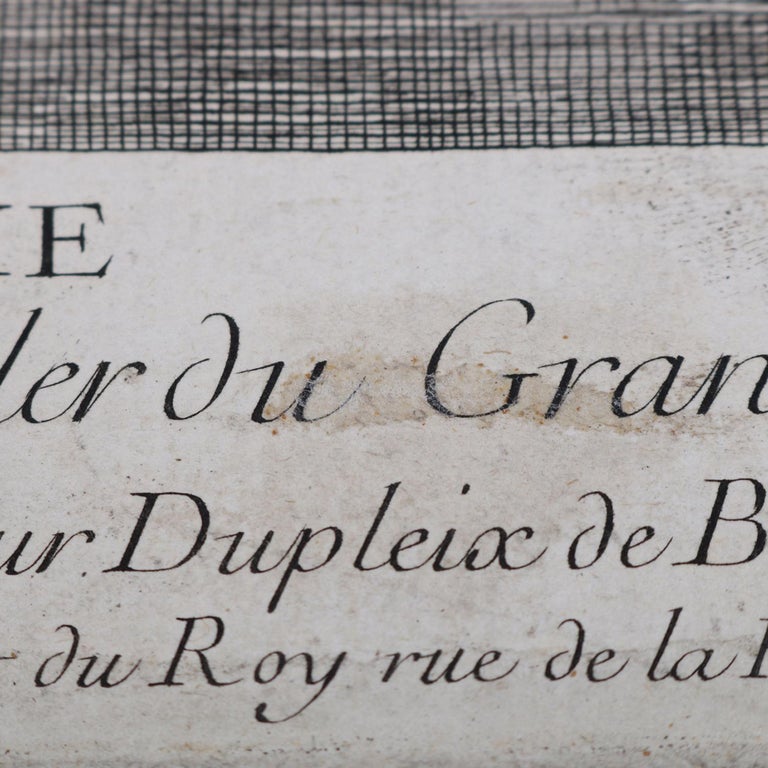 IE
ler du Gran
ur Dupleix de B
du Roy rue de la